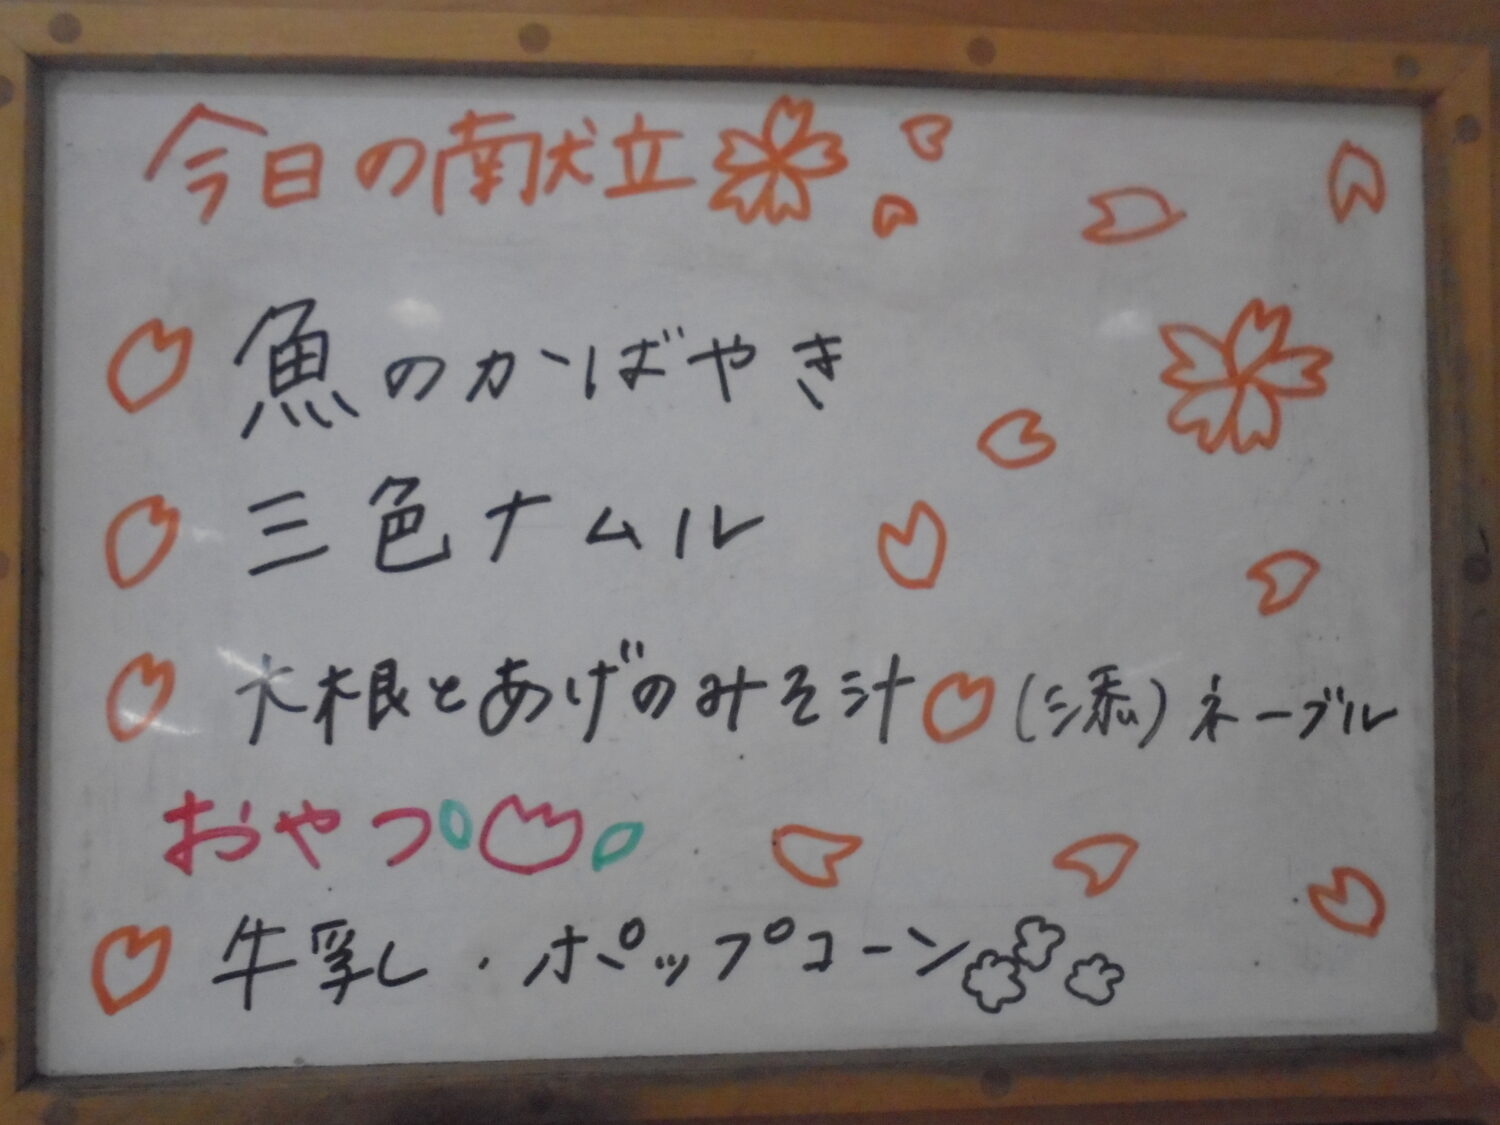 今日の献立
魚のかばやき
三色ナムル
大根とあげのみそ汁 (添) ネーブル
おやつ
牛乳・ポップコーン